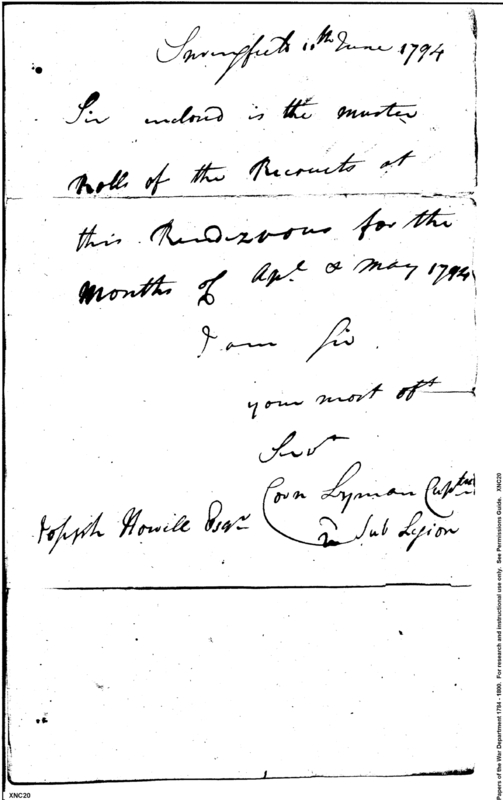 Springfield 10th June 1794
Sir enclosed is the muster
Rolls of the Recruits at
this Rendezvous for the
Months of Apl & May 1794
I am Sir
your most obt
Servt
Corn Lyman Captn
Joseph Howell Esqr
Sub Legion
Papers of the War Department 1784 - 1800. For research and instructional use only. See Permissions Guide. XNC20
XNC20